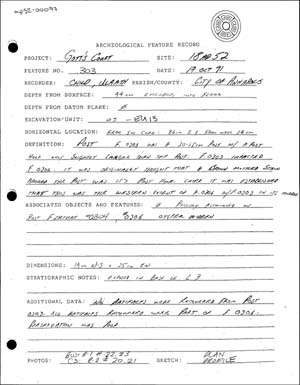 ap52-00097
ARCHEOLOGICAL FEATURE RECORD
PROJECT: Gott's Court SITE: 18AP52
FEATURE NO. 303 DATE: 17 Oct 91
RECORDER: PARISH/COUNTY: City of Annapolis
DEPTH FROM SURFACE: 44 cm
DEPTH FROM DATUM PLANE: Ø
EXCAVATION UNIT:
HORIZONTAL LOCATION:
DEFINITION: Post F. 0303 was a 10-15cm Post w/ a Post
Hole was slightly larger than the post. F.0303 intruded
F.0306. It was originally thought that a
around the post was it's post hole. Later it was established
that this was the western extent of F.0306 w/ F.0303 in its
ASSOCIATED OBJECTS AND FEATURES: Ø Possibly associated w/
Post Feature 0304 0306 oyster midden
DIMENSIONS: 14cm N-S x 25cm EW
STRATIGRAPHIC NOTES: Found in base of L 3
ADDITIONAL DATA: No artifacts were recovered from Post
0303. All artifacts recovered were part of F 0306.
Preservation was poor
PHOTOS: B/W: R1 # 22, 23
CS: R2 # 20, 21
SKETCH: PLAN
PROFILE